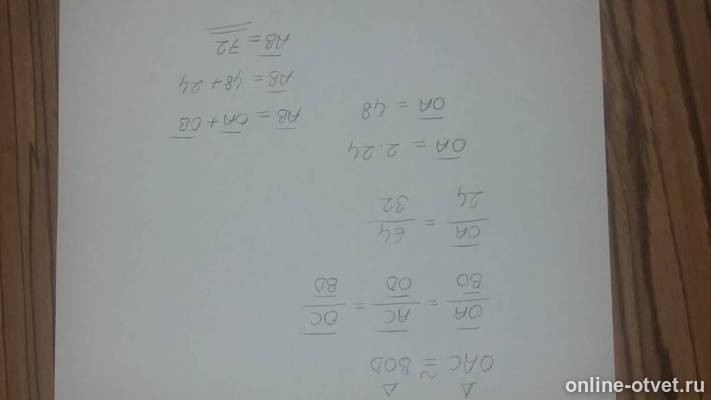 Δ Δ
OAC ≅ BOD
OA/BO = AC/OD = OC/BD
OA/24 = 64/32
OA = 2·24
OA = 48
AB = OA + OB
AB = 48 + 24
AB = 72
online-otvet.ru